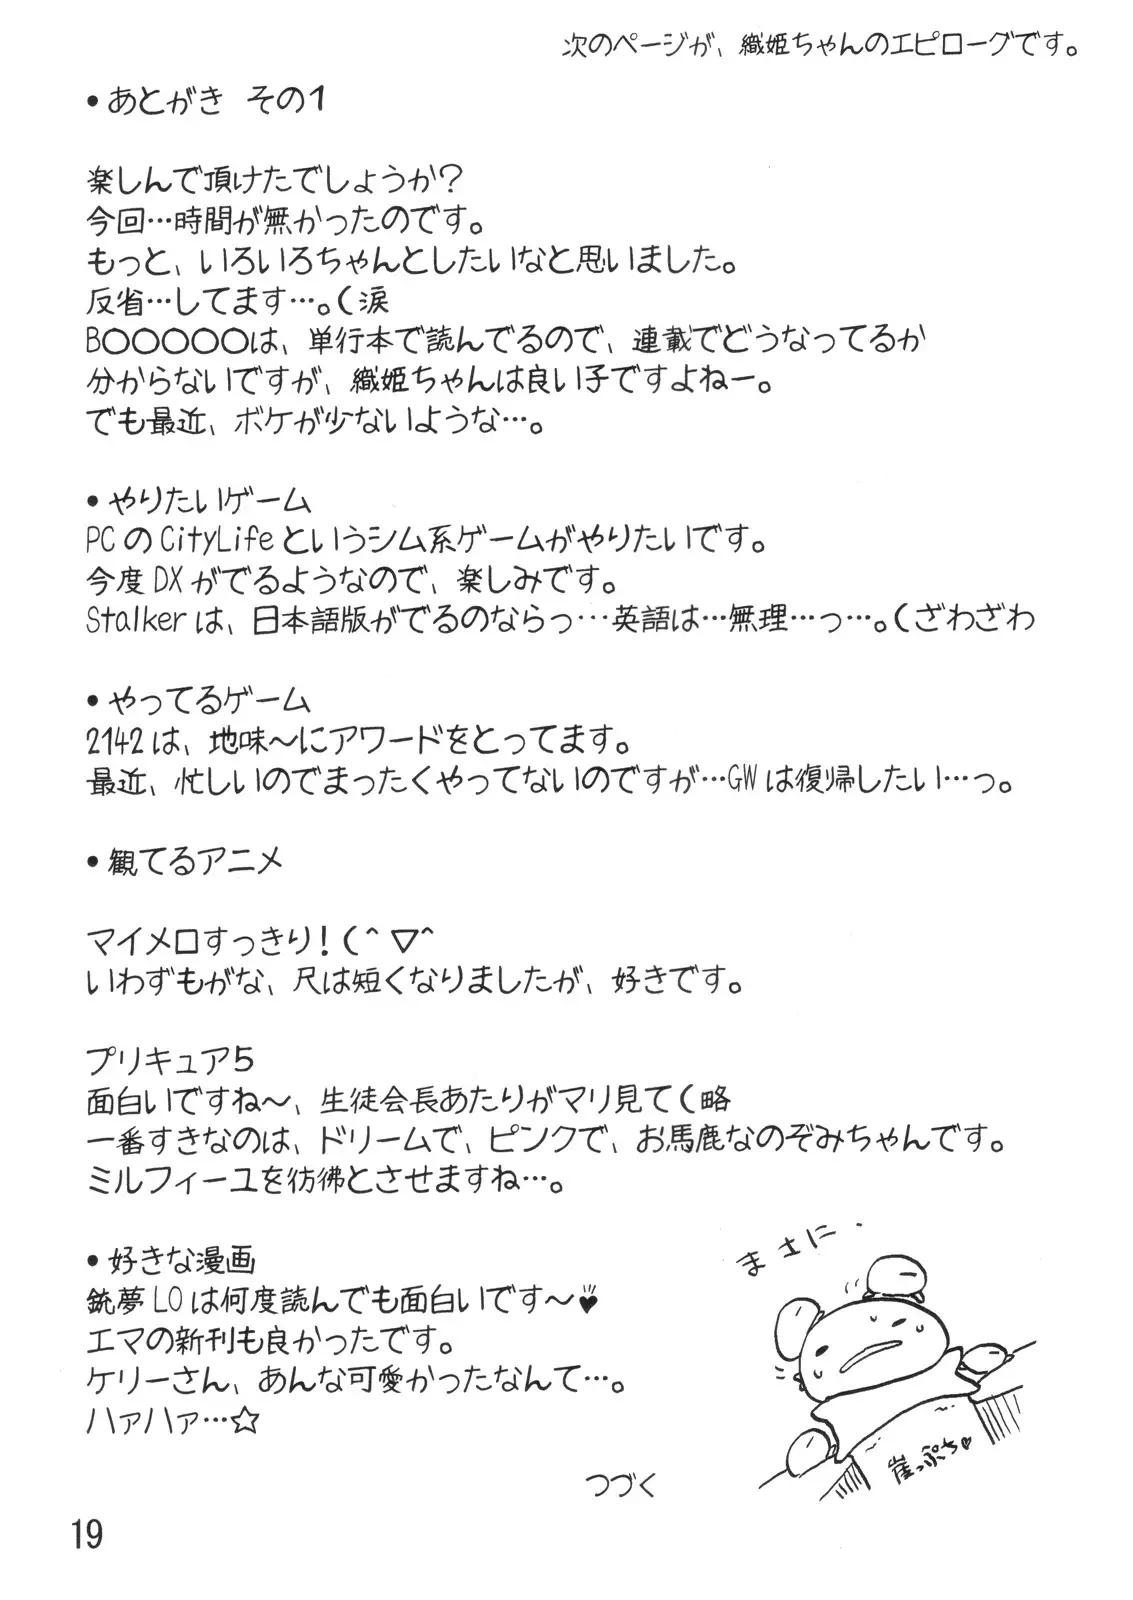 次のページが、織姫ちゃんのエピローグです。
•あとがき その1
楽しんで頂けたでしょうか?
今回…時間が無かったのです。
もっと、いろいろちゃんとしたいなと思いました。
反省…してます…。(涙
B〇〇〇〇〇は、単行本で読んでるので、連載でどうなってるか
分からないですが、織姫ちゃんは良い子ですよねー。
でも最近、ボケが少ないような…。
•やりたいゲーム
PCのCityLifeというシム系ゲームがやりたいです。
今度DXがでるようなので、楽しみです。
Stalkerは、日本語版がでるのならっ…英語は…無理…っ…。(ざわざわ
•やってるゲーム
2142は、地味〜にアワードをとってます。
最近、忙しいのでまったくやってないのですが…GWは復帰したい…っ。
•観てるアニメ
マイメロすっきり!(^▽^
いわずもがな、尺は短くなりましたが、好きです。
プリキュア5
面白いですね〜、生徒会長あたりがマリ見て(略
一番すきなのは、ドリームで、ピンクで、お馬鹿なのぞみちゃんです。
ミルフィーユを彷彿とさせますね…。
•好きな漫画
銃夢LOは何度読んでも面白いです〜♥
エマの新刊も良かったです。
ケリーさん、あんな可愛かったなんて…。
ハァハァ…☆
まさに・
崖っぷち♥
つづく
19